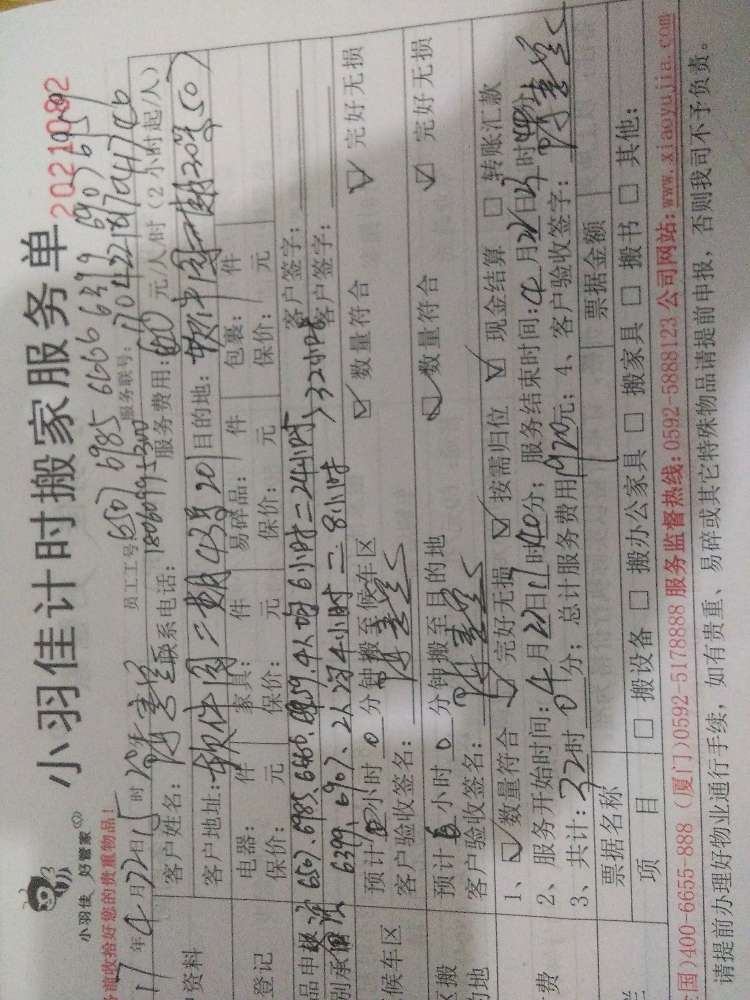 小羽佳计时搬家服务单
2021092
小羽佳 好管家
务请收拾好您的贵重物品!
员工工号: 6507 6985 6666 6399 6907 6959
17年4月22日15时20分
服务联号:
客户姓名:
联系电话: 18060995300
服务费用: 60 元/人/时(2小时起/人)
户资料
客户地址: 软件园二期43号201
目的地: 软件园二期20号501
电器: 件 家具: 件 易碎品: 件 包裹: 件
登记
保价: 元 保价: 元 保价: 元 保价: 元
6507.6985.6666.6959.4人*6小时=24小时
客户签字:
6399、6907、2人*4小时=8小时
32小时
客户签字:
预计 小时 0 分钟搬至候车区
数量符合
完好无损
候车区
客户验收签名:
预计 小时 0 分钟搬至目的地
数量符合
完好无损
的地
客户验收签名:
1、 数量符合 完好无损 按需归位 现金结算 转账汇款
2、服务开始时间: 4月22日17时40分; 服务结束时间: 4月22日 时40分
费
3、共计: 32时 0 分; 总计服务费用 1920 元; 4、客户验收签字:
票据名称
票据金额
项 目
搬设备 搬办公家具 搬家具 搬书 其他:
国)400-6655-888 (厦门)0592-5178888 服务监督热线:0592-5888123 公司网站:www.xiaoyujia.com
请提前办理好物业通行手续,如有贵重、易碎或其它特殊物品请提前申报,否则我司不予负责。